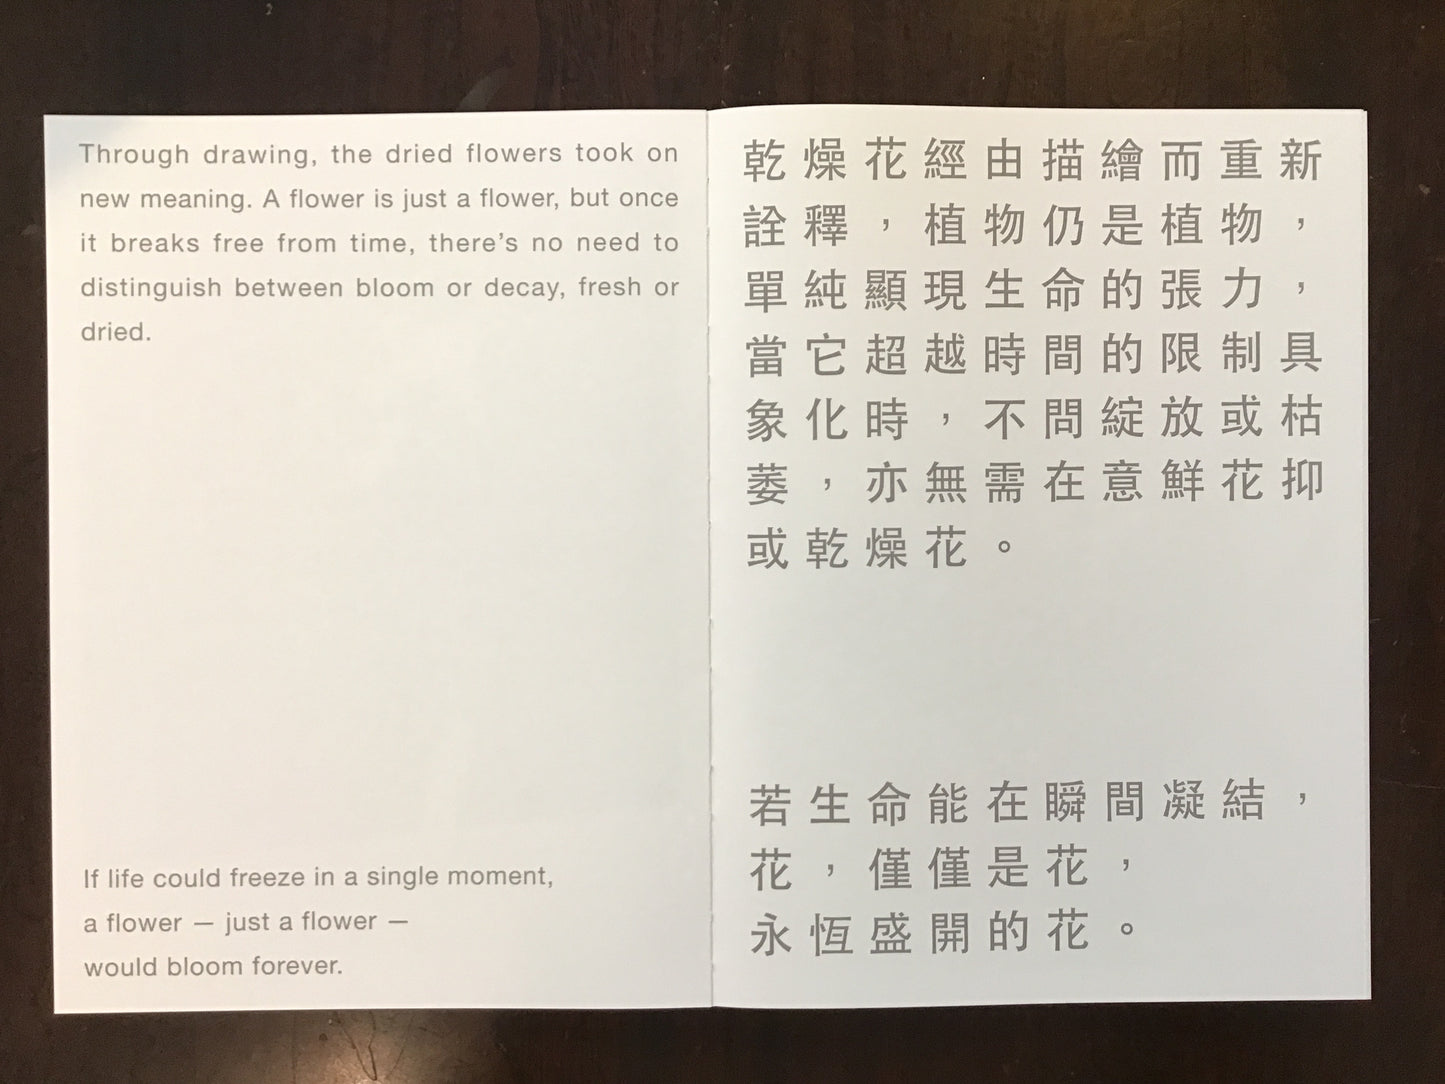 Through drawing, the dried flowers took on
new meaning. A flower is just a flower, but once
it breaks free from time, there’s no need to
distinguish between bloom or decay, fresh or
dried.
If life could freeze in a single moment,
a flower — just a flower —
would bloom forever.
乾燥花經由描繪而重新
詮釋，植物仍是植物，
單純顯現生命的張力，
當它超越時間的限制具
象化時，不問綻放或枯
萎，亦無需在意鮮花抑
或乾燥花。
若生命能在瞬間凝結，
花，僅僅是花，
永恆盛開的花。